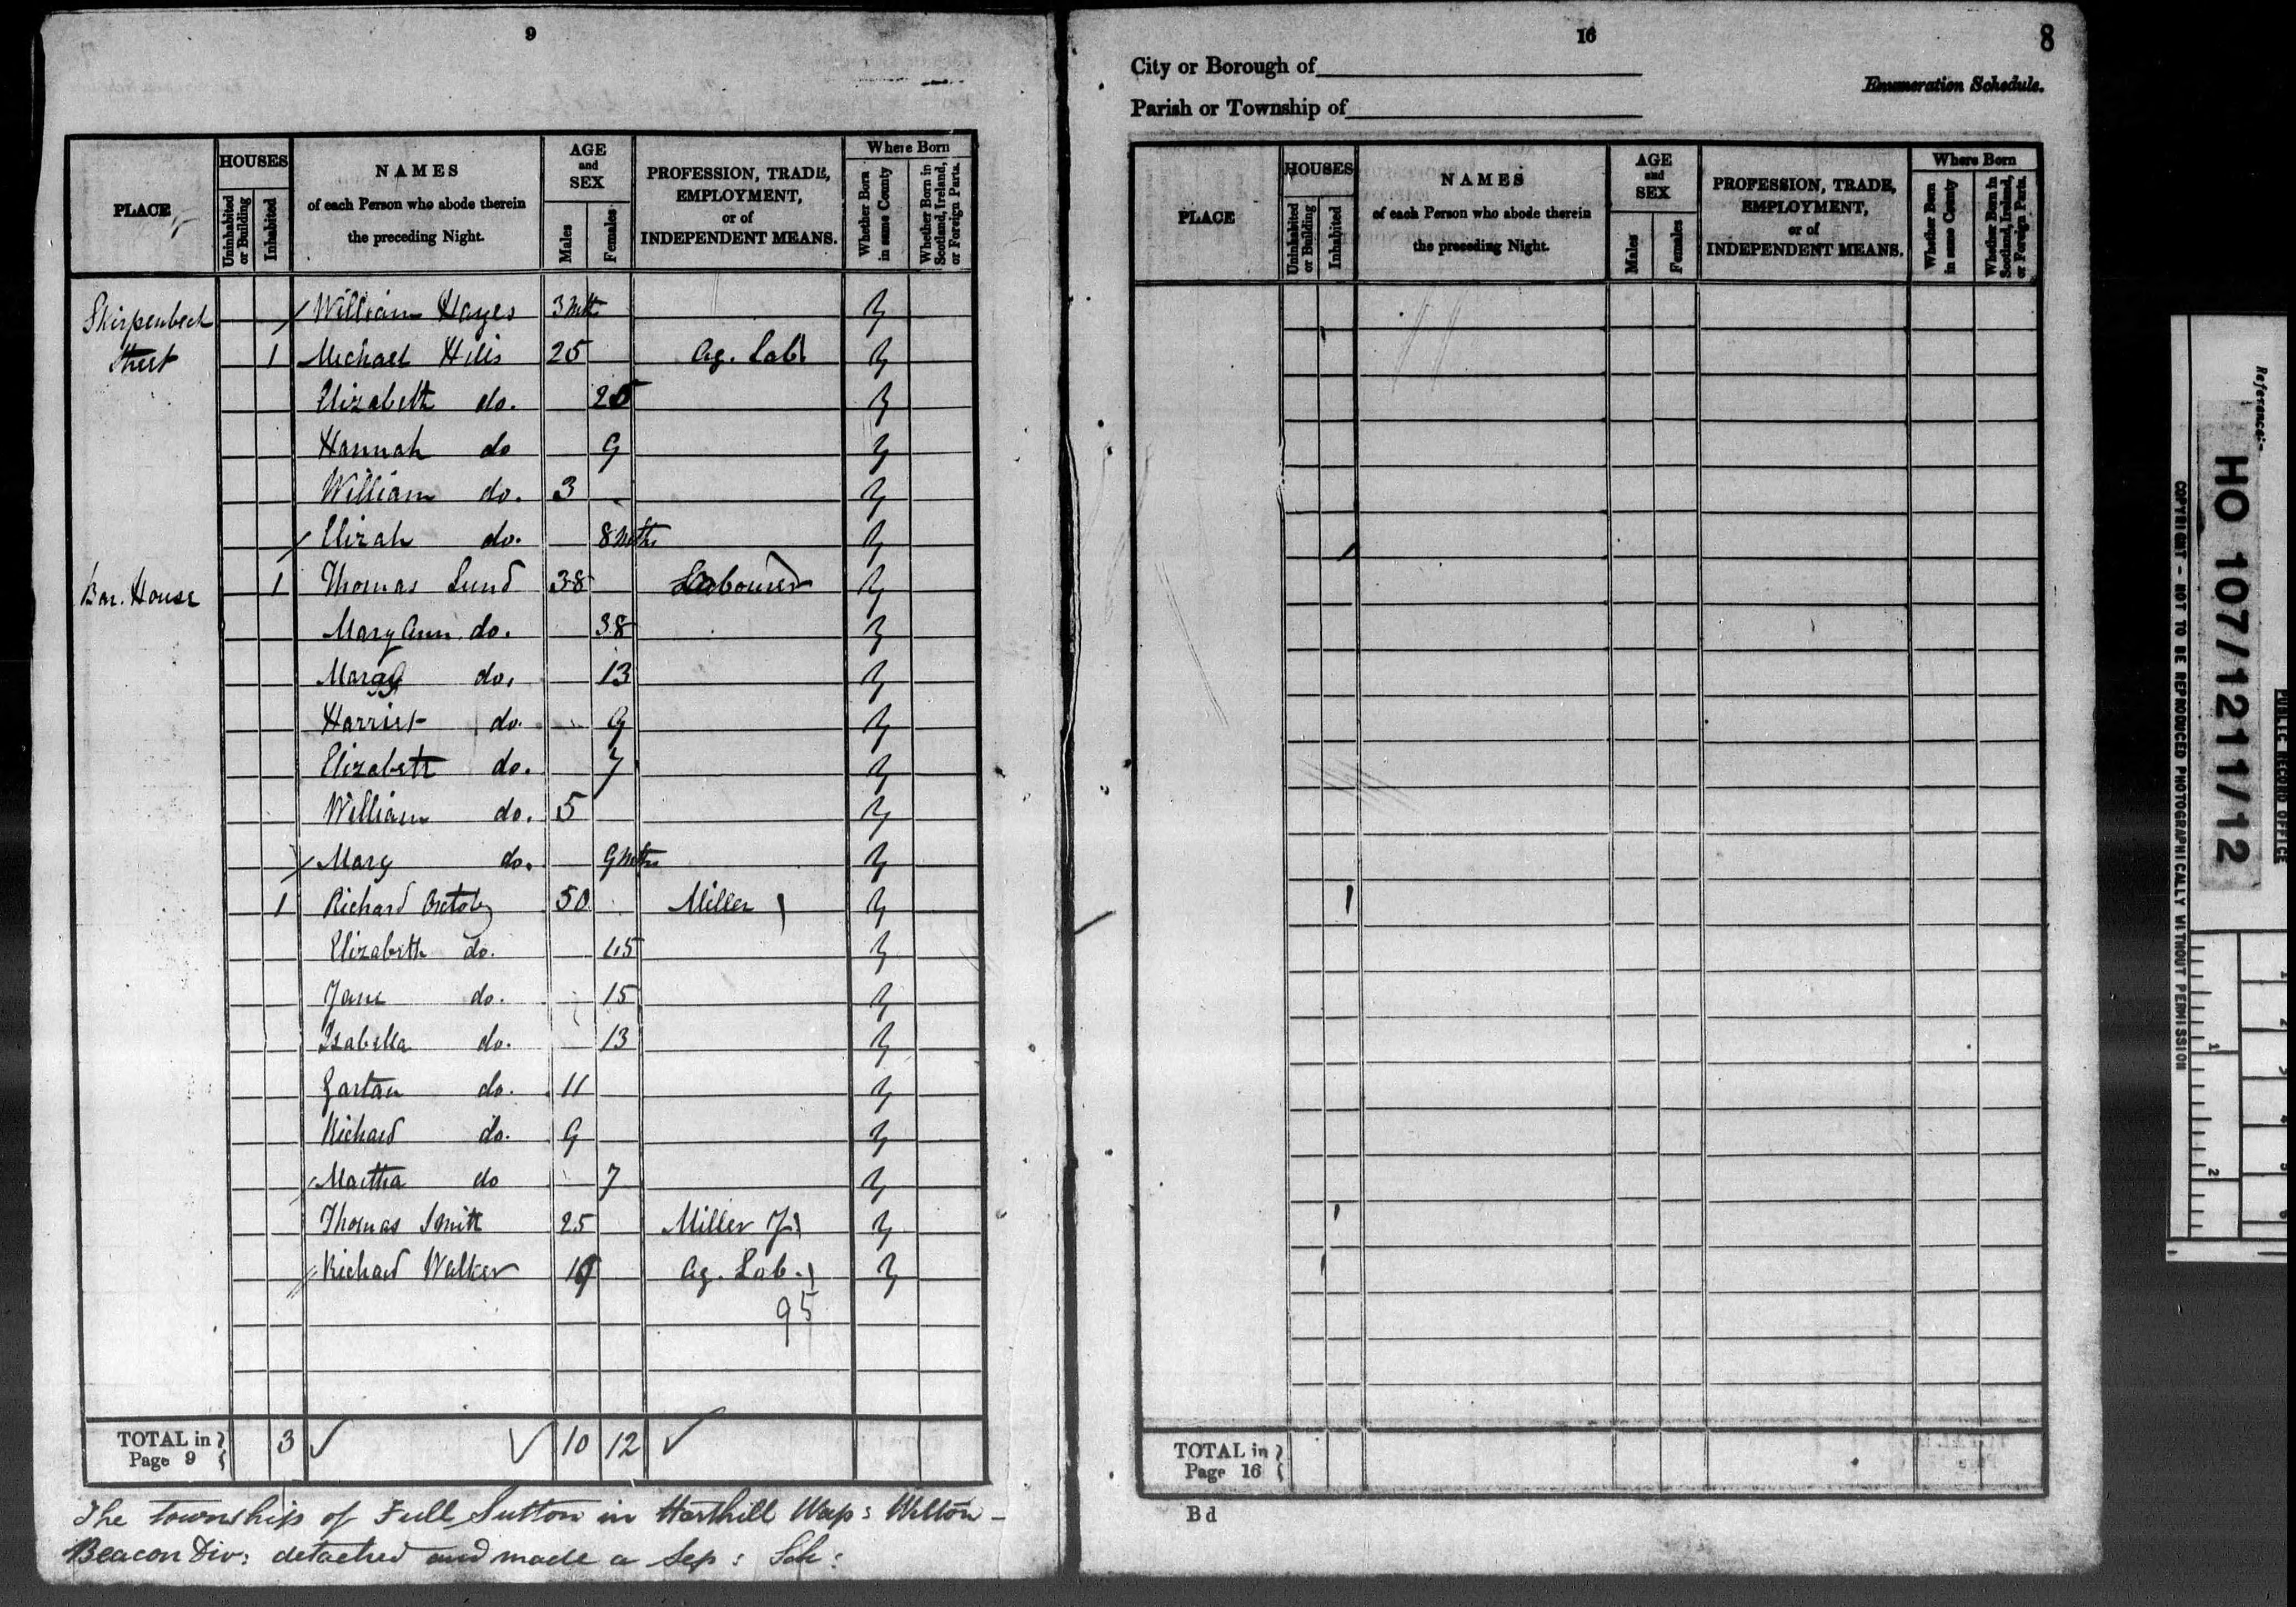 9
PLACE
HOUSES
Uninhabited or Building
Inhabited
NAMES
of each Person who abode therein
the preceding Night.
AGE
and
SEX
Males
Females
PROFESSION, TRADE,
EMPLOYMENT,
or of
INDEPENDENT MEANS.
Where Born
Whether Born in same County
Whether Born in Scotland, Ireland, or Foreign Parts.
Skirpenbeck William Hayes 3 Mths y
Street 1 Michael Hills 25 Ag. Lab. y
Elizabeth do. 25 y
Hannah do 9 y
William do. 3 y
Elizah do. 8 Mths y
Bar. House 1 Thomas Lund 38 Labourer y
Mary Ann do. 38 y
do. 13 y
Harriet do. 9 y
Elizabeth do. 7 y
William do. 5 y
Mary do. 9 Mths y
1 Richard 50 Miller y
Elizabeth do. 45 y
Jane do. 15 y
Isabella do. 13 y
do. 11 y
Richard do. 9 y
Martha do 7 y
Thomas Smith 25 Miller J. y
Richard Walker Ag. Lab. y
95
TOTAL in Page 9 3 10 12
The township of Full Sutton in Harthill Wap: Wilton-
Beacon Div: detached and made a Sep: Sch:
16
8
City or Borough of
Enumeration Schedule.
Parish or Township of
PLACE
HOUSES
Uninhabited or Building
Inhabited
NAMES
of each Person who abode therein
the preceding Night.
AGE
and
SEX
Males
Females
PROFESSION, TRADE,
EMPLOYMENT,
or of
INDEPENDENT MEANS.
Where Born
Whether Born in same County
Whether Born in Scotland, Ireland, or Foreign Parts.
TOTAL in Page 16
Bd
Reference:-
HO 107/1211/12
PUBLIC RECORD OFFICE
COPYRIGHT - NOT TO BE REPRODUCED PHOTOGRAPHICALLY WITHOUT PERMISSION
1
2